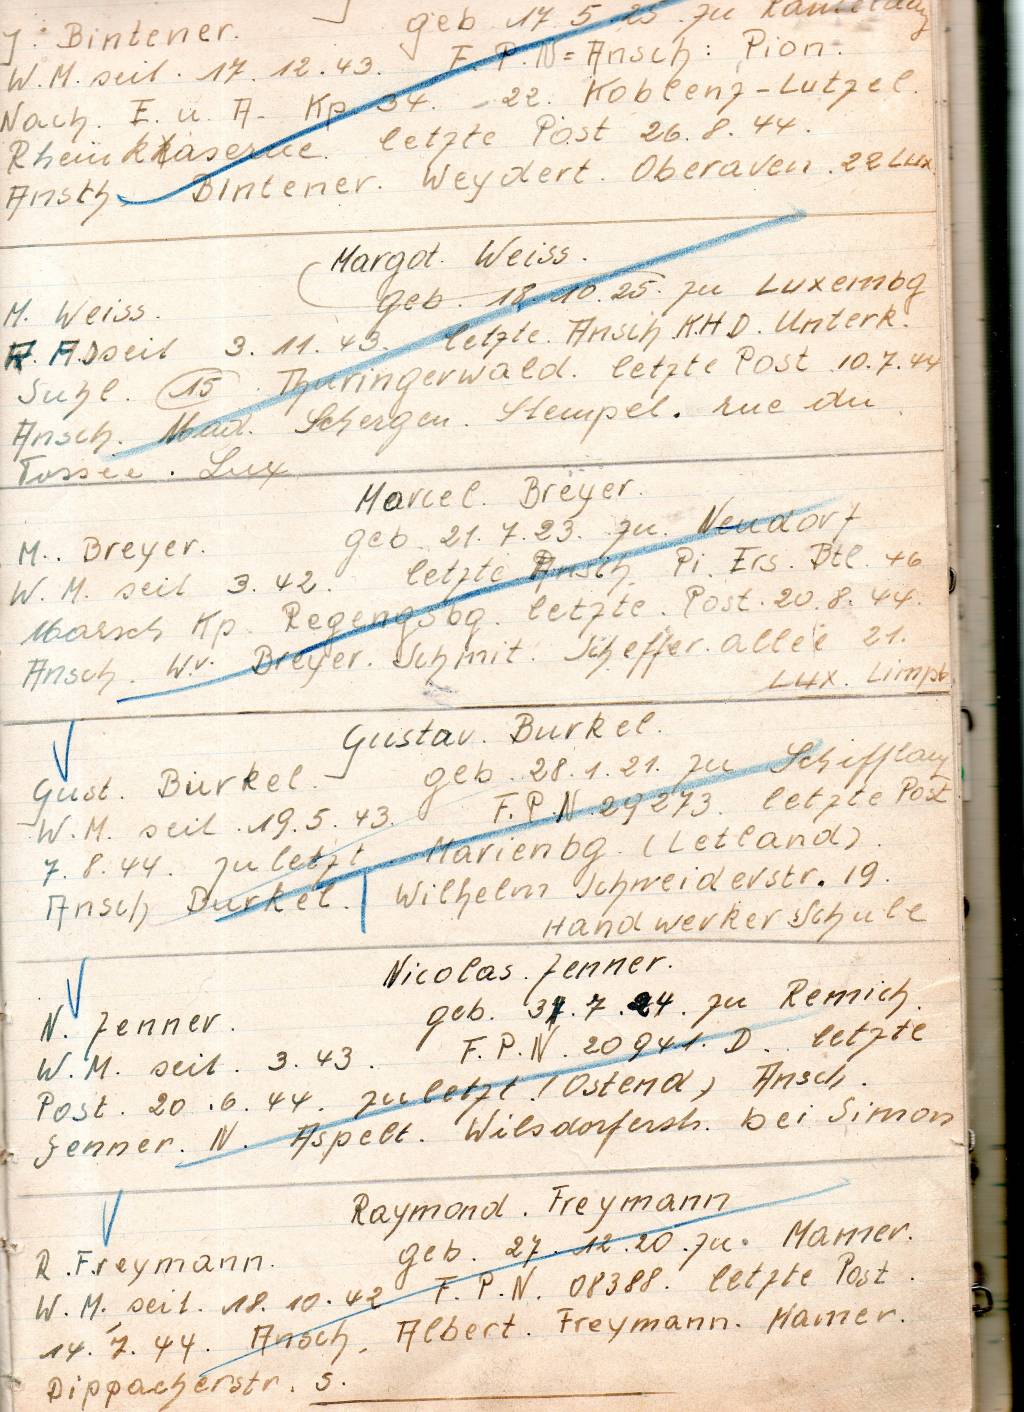 J. Bintener. geb 17 5 25 zu
W.M. seit. 17. 12. 43. F.P.N = Ansch: Pion.
Nach. E. u. A. Kp 34. - 22. Koblenz-Lutzel.
Rheinkaserne. letzte Post 26. 8. 44.
Ansch Bintener. Weydert. Oberaven. 22 Lux
Margot. Weiss.
M. Weiss. geb. 18. 10. 25. zu Luxembg
R. A.D seit 3. 11. 43. letzte. Ansch K.H.D. Unterk.
Suhl. (15) Thuringerwald. letzte Post 10. 7. 44
Ansch. Mad. Schergen. Stempel. rue du
Fossee. Lux
Marcel. Breyer.
M. Breyer. geb 21. 7. 23. zu. Neudorf
W. M. seit 3. 42. letzte Ansch. Pi. Ers. Btl. 46
Marsch Kp. Regengsbg. letzte. Post. 20. 8. 44.
Ansch. Wv. Breyer. Schmit. Scheffer. allee 21.
Lux. Limpb
Gustav. Burkel.
Gust. Burkel. geb. 28. 1. 21. zu Schifflang
W. M. seit. 19. 5. 43. F.P.N 29273. letzte Post
7. 8. 44. zuletzt. Marienbg. (Letland).
Ansch Burkel. Wilhelm Schneiderstr. 19.
Handwerker Schule
Nicolas. Jenner.
N. Jenner. geb. 31. 7. 24. zu Remich.
W. M. seit. 3. 43 F. P. N. 20941. D. letzte
Post. 20. 6. 44. zuletzt (Ostend) Ansch.
Jenner. N. Aspelt. Wilsdorferstr. bei Simon
Raymond. Freymann
R. Freymann. geb. 27. 12. 20. zu. Mamer.
W. M. seit. 18. 10. 42 F. P. N. 08388. letzte Post.
14. 7. 44. Ansch. Albert. Freymann. Mamer.
Dippacherstr. 5.